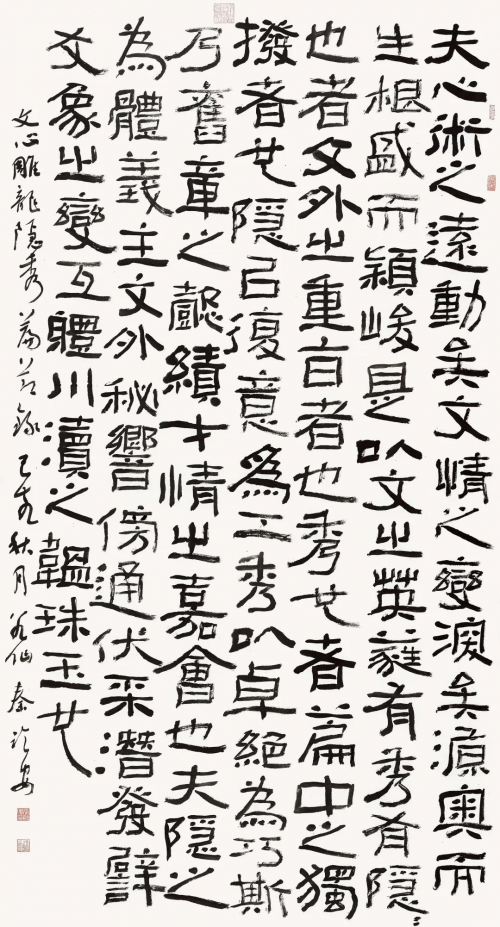 夫心術之遠動矣文情之變深矣源奧而
生根盛而穎峻是以文之英蕤有秀有隱:
也者文外之重旨者也秀也者篇中之獨
撥者也隱以復意爲工秀以卓絕為巧斯
乃舊章之懿績才情之嘉會也夫隱之
為體義主文外秘響傍通伏采潛發譬
爻象之變互體川瀆之韞珠玉也
文心雕龍隱秀篇節錄己亥秋月